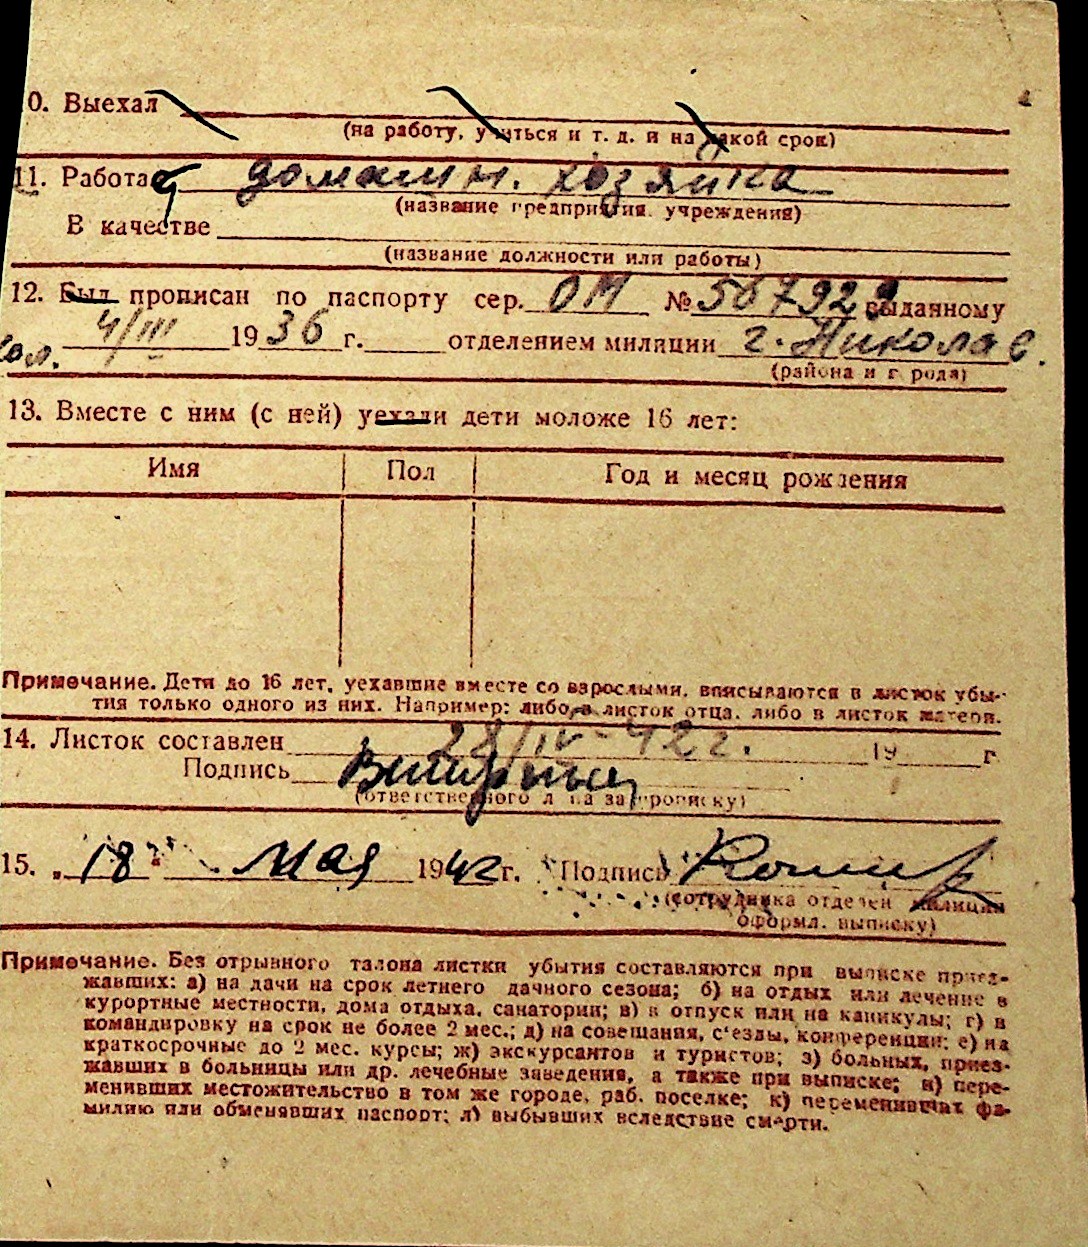 0. Выехал
(на работу, учиться и т. д. и на какой срок)
11. Работа домашн. хозяйка
(название предприятия, учреждения)
В качестве
(название должности или работы)
12. Был прописан по паспорту сер. ОМ № 567929 выданному
4/III 1936 г. отделением милиции г. Николаев.
(района и города)
13. Вместе с ним (с ней) уехали дети моложе 16 лет:
Имя Пол Год и месяц рождения
Примечание. Дети до 16 лет, уехавшие вместе со взрослыми, вписываются в листок убы-
тия только одного из них. Например: либо в листок отца, либо в листок матери.
14. Листок составлен 28/IV-42 г. 19 г
Подпись
(ответственного лица за прописку)
15. "18" мая 1942 г. Подпись
(сотрудника отделен милиции
оформл. выписку)
Примечание. Без отрывного талона листки убытия составляются при выписке приез-
жавших: а) на дачи на срок летнего дачного сезона; б) на отдых или лечение в
курортные местности, дома отдыха, санатории; в) в отпуск или на каникулы; г) в
командировку на срок не более 2 мес.; д) на совещания, с'езды, конференции; е) на
краткосрочные до 2 мес. курсы; ж) экскурсантов и туристов; з) больных, приез-
жавших в больницы или др. лечебные заведения, а также при выписке; и) пере-
менивших местожительство в том же городе, раб. поселке; к) переменивших фа-
милию или обменявших паспорт; л) выбывших вследствие смерти.